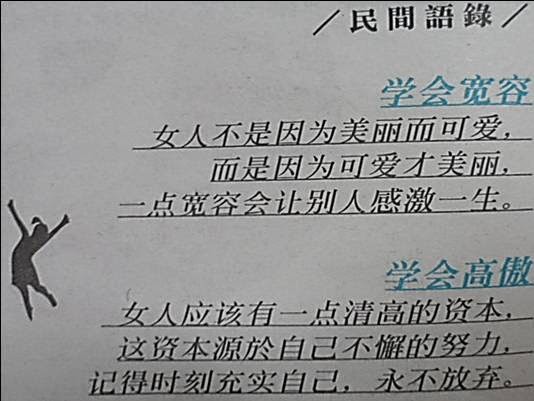 ／民間語錄／
学会宽容
女人不是因为美丽而可爱，
而是因为可爱才美丽，
一点宽容会让别人感激一生。
学会高傲
女人应该有一点清高的资本，
这资本源於自己不懈的努力，
记得时刻充实自己，永不放弃。